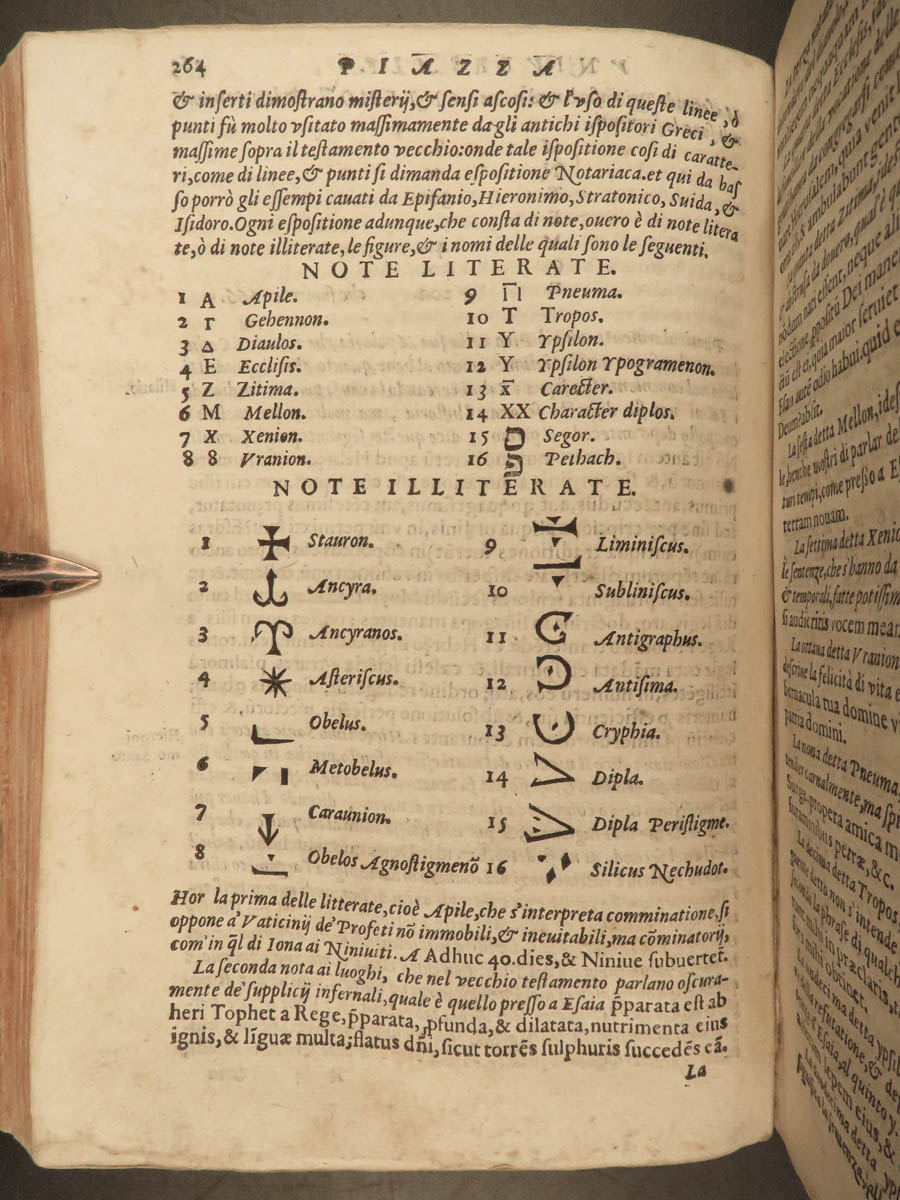 264 PIAZZA
& inserti dimostrano misterij, & sensi ascosi: & l'vso di queste linee, ò
punti fù molto vsitato massimamente da gli antichi ispositori Greci, &
massime sopra il testamento vecchio: onde tale ispositione cosi di caratte-
ri, come di linee, & punti si dimanda espositione Notariaca. et qui da bas
so porrò gli essempi cauati da Epifanio, Hieronimo, Stratonico, Suida, &
Isidoro. Ogni espositione adunque, che consta di note, ouero è di note litera
te, ò di note illiterate, le figure, & i nomi delle quali sono le seguenti.
NOTE LITERATE.
1 A Apile.
2 Γ Gehennon.
3 Δ Diaulos.
4 E Ecclisis.
5 Z Zitima.
6 M Mellon.
7 X Xenion.
8 8 Vranion.
9 Π Pneuma.
10 T Tropos.
11 Y Ypsilon.
12 Y Ypsilon Ypogramenon.
13 x̄ Carecter.
14 XX Charachter diplos.
15 ם Segor.
16 פ Pethach.
NOTE ILLITERATE.
1 Stauron.
2 Ancyra.
3 Ancyranos.
4 Asteriscus.
5 Obelus.
6 Metobelus.
7 Caraunion.
8 Obelos Agnostigmenō
9 Liminiscus.
10 Subliniscus.
11 Antigraphus.
12 Antisima.
13 Cryphia.
14 Dipla.
15 Dipla Peristigme.
16 Silicus Nechudot.
Hor la prima delle litterate, cioè Apile, che s'interpreta comminatione, si
oppone a' Vaticinij de' Profeti nō immobili, & ineuitabili, ma cōminatorij,
com'in q̄l di Iona ai Niniuiti. A Adhuc 40. dies, & Niniue subuertet.
La seconda nota ai luoghi, che nel vecchio testamento parlano oscura-
mente de' supplicij infernali, quale è quello presso a Esaia p̄parata est ab
heri Tophet a Rege, p̄parata, ꝓfunda, & dilatata, nutrimenta eius
ignis, & līgua multa; flatus dn̄i, sicut torrēs sulphuris succedēs eā.
La